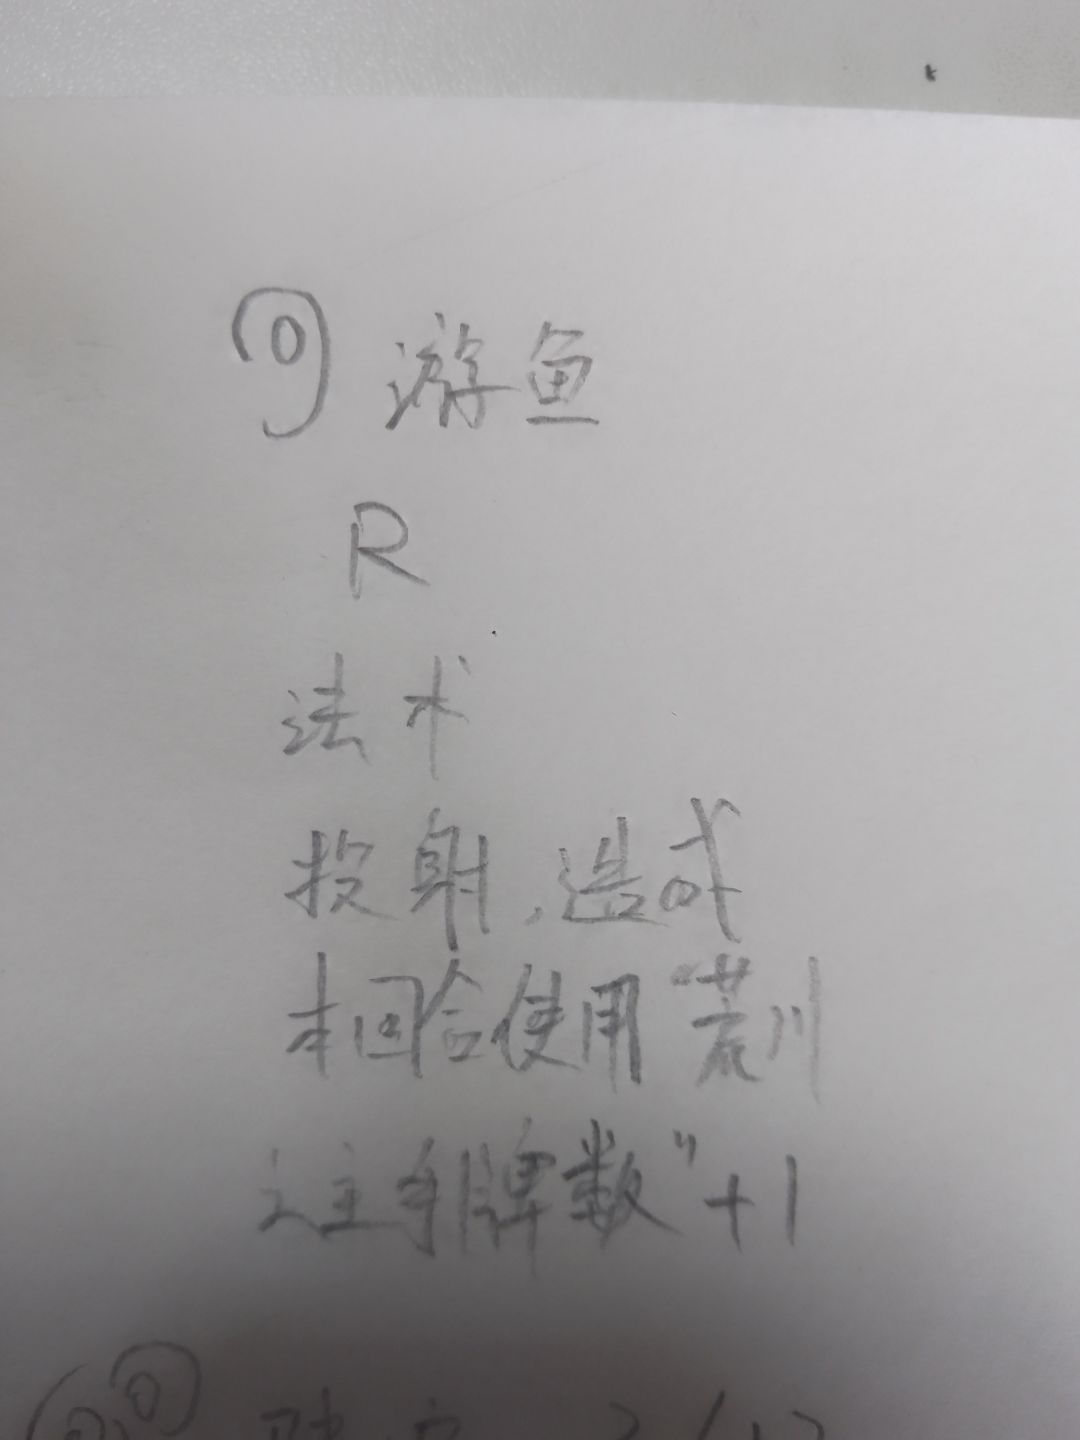 游鱼
R
法术
投射,造成
本回合使用“荒川
之主手牌数”+1